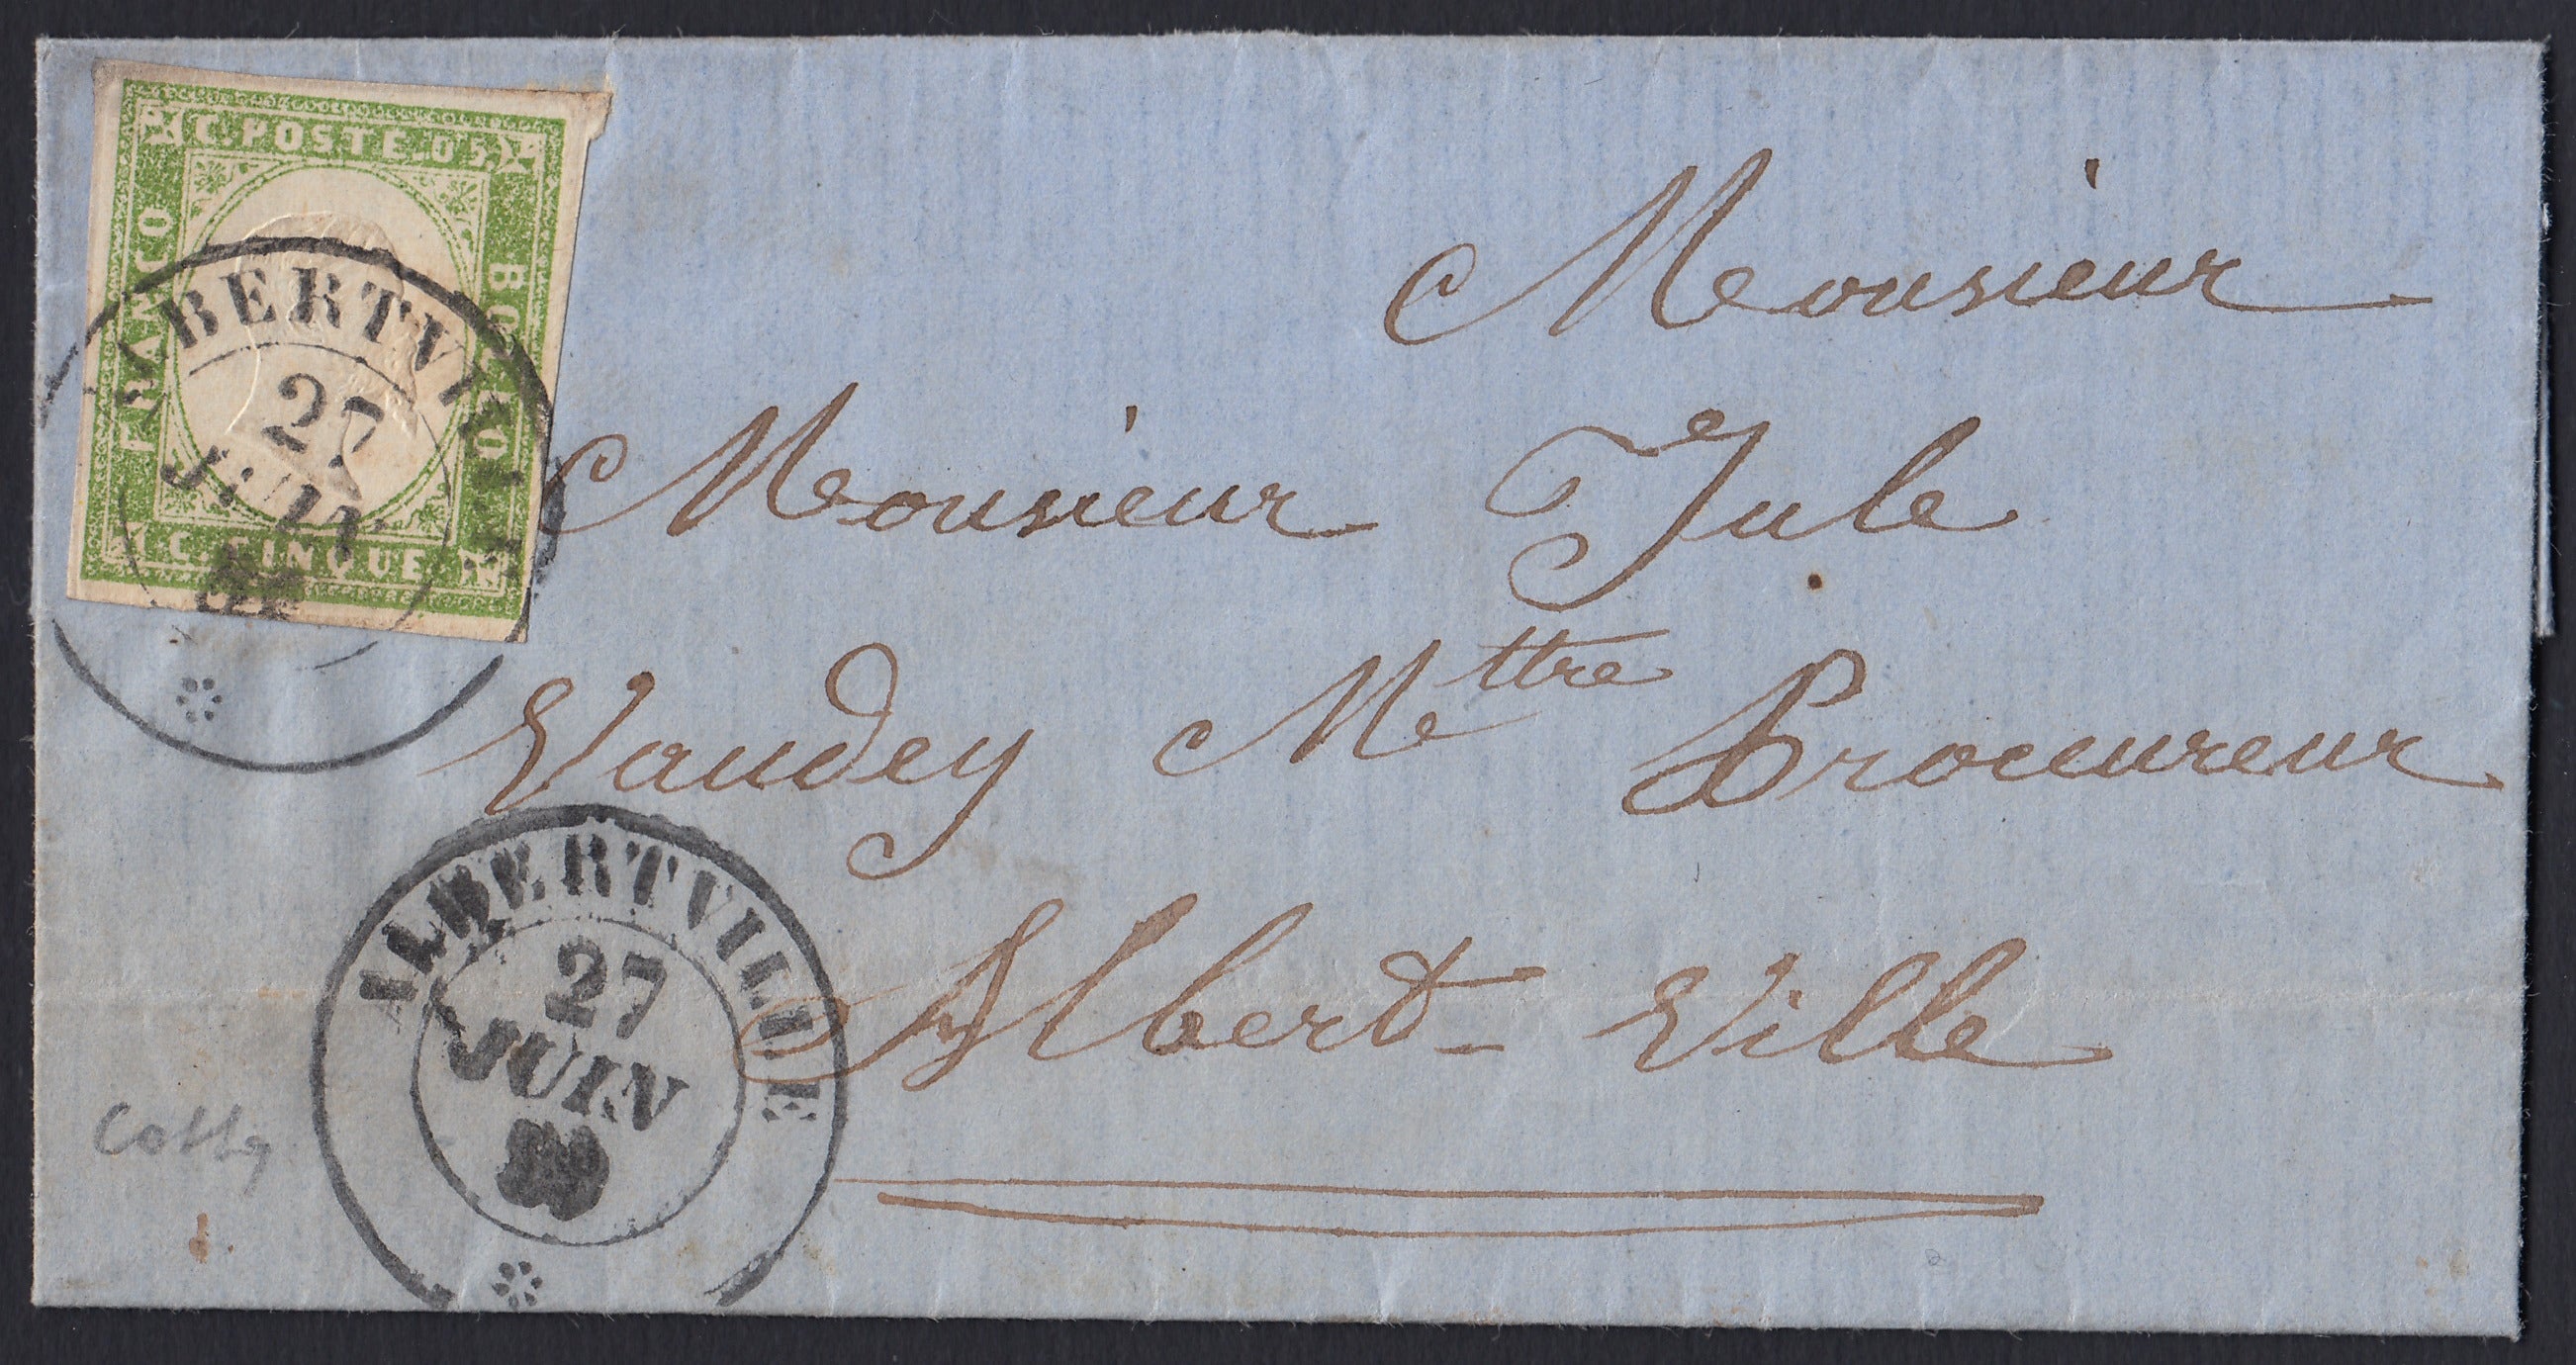 C. POSTE. 05.
FRANCO
BOLLO
C. CINQUE.
ALBERTVILLE
27
JUIN
Monsieur
Monsieur Jule
Vaudey Mettre Procureur
Albert-Ville
ALBERTVILLE
27
JUIN